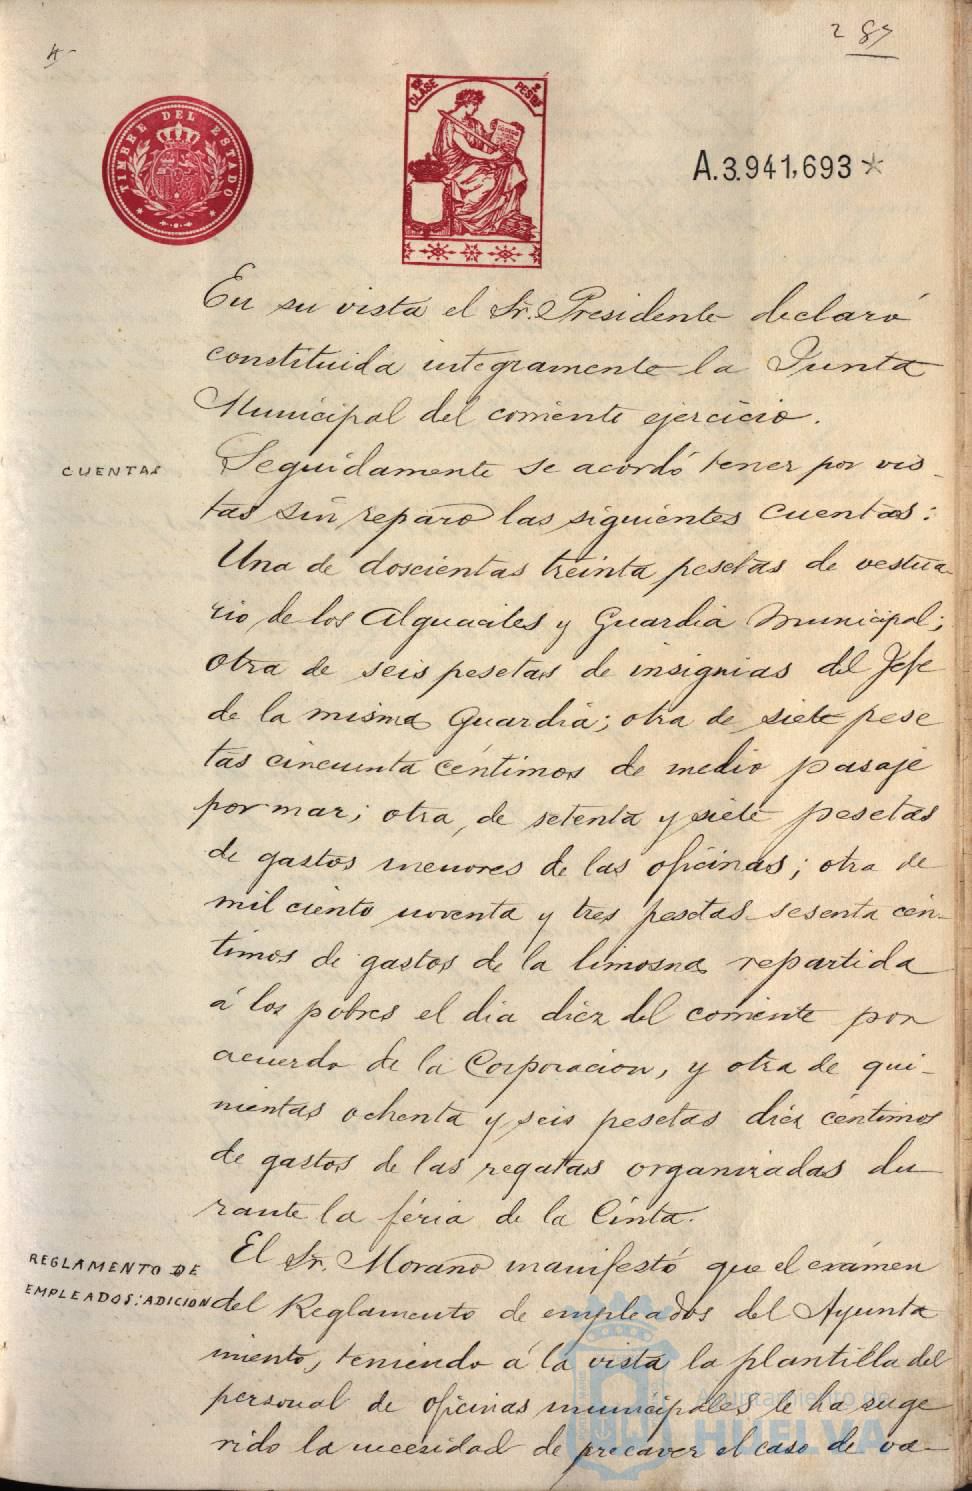 4
287
TIMBRE DEL ESTADO
CLASE
PESETAS
A.3.941,693
En su vista el Sr. Presidente declaró
constituida integramente la Junta
Municipal del corriente ejercicio.
CUENTAS
Seguidamente se acordó tener por vis-
tas sin reparo las siguientes cuentas:
Una de doscientas treinta pesetas de vestua-
rio de los Alguaciles y Guardia Municipal;
otra de seis pesetas de insignias del Jefe
de la misma Guardia; otra de siete pese
tas cincuenta céntimos de medio pasaje
por mar; otra, de setenta y siete pesetas
de gastos menores de las oficinas; otra de
mil ciento noventa y tres pesetas sesenta cén-
timos de gastos de la limosna repartida
á los pobres el dia diez del corriente por
acuerdo de la Corporacion, y otra de qui-
nientas ochenta y seis pesetas diez céntimos
de gastos de las regatas organizadas du
rante la féria de la Cinta.
REGLAMENTO DE
EMPLEADOS: ADICION
El Sr. Morano manifestó que el exámen
del Reglamento de empleados del Ayunta
miento, teniendo á la vista la plantilla del
personal de oficinas municipales le ha suge
rido la necesidad de precaver el caso de va-
Ayuntamiento de
HUELVA